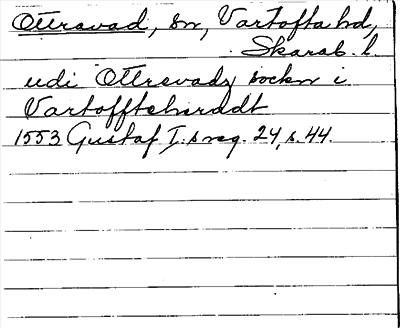 Ottravad, sn, Vartofta hd,
Skarab. l.
udi Ottrevadz socken i
Vartofftehäradt
1553 Gustaf I:s reg. 24, s. 44.